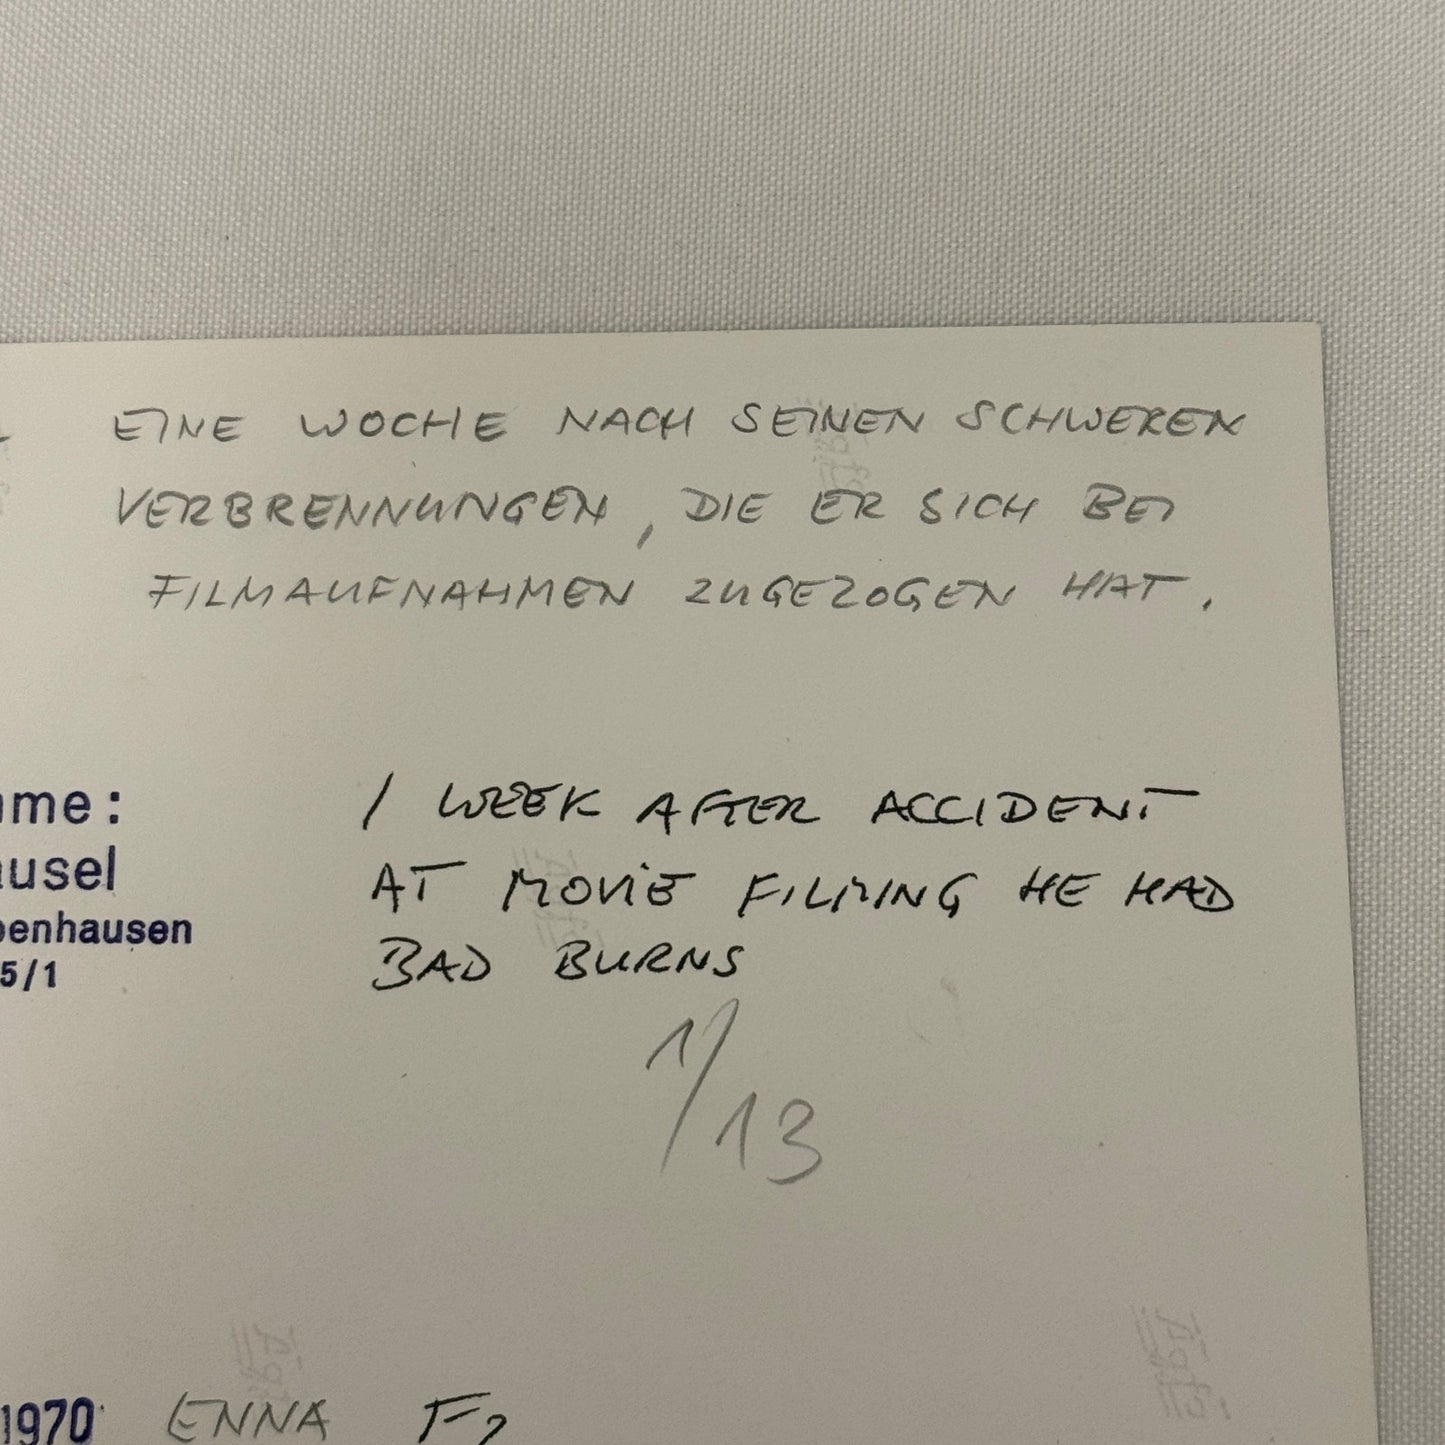 EINE WOCHE NACH SEINEN SCHWEREN
VERBRENNUNGEN, DIE ER SICH BEI
FILMAUFNAHMEN ZUGEZOGEN HAT.
me:
usel
enhausen
5/1
1 WEEK AFTER ACCIDENT
AT MOVIE FILMING HE HAD
BAD BURNS
1/13
1970 ENNA F2